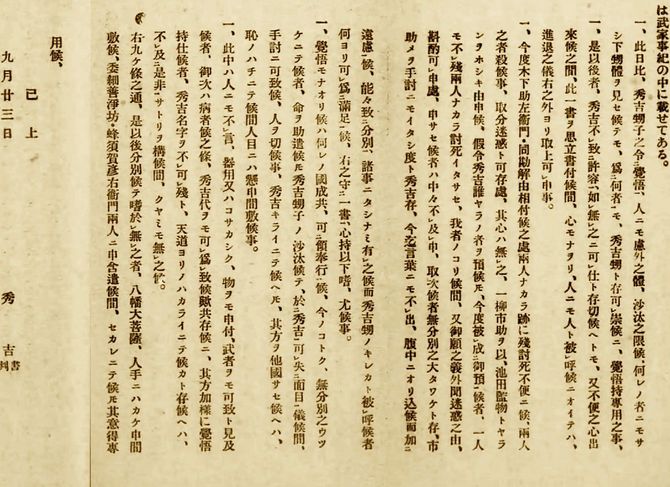 は武家事紀の中に載せてある。
一、此日比、秀吉甥子之令ニ覺悟一、人ニモ慮外之體、沙汰之限候、何レノ者ニモサ
シ下甥體ヲ見セ候テモ、爲ニ何者ニモ、秀吉甥ト存可ニ崇候一ニ、覺悟持專用之事、
一、是以後者、秀吉不ニ致ニ許容一、如レ無レ之ニ可レ仕ト存切候ヘトモ、又不便之心出
來候之間、此一書ヲ思立書付候間、心モナヲリ、人ニモ人ト被レ呼候ニオイテハ、
進退之儀右之外ヨリ取上可レ申事。
一、今度木下助左衞門・同勘解由相付候之處兩人ナカラ跡ニ殘討死不便ニ候、兩人
之者殺候事、取分迷惑ト可存處、其心ハ無レ之、一柳市助ヲ以、池田監物トヤラ
ンヲホシキ由申候、假令秀吉誰ヤラノ者ヲ預候トモ、今度被レ成ニ御預一候者、一人
モ不レ殘兩人ナカラ討死イタサセ、我者ノコリ候間、又御願之義外聞迷惑之由、
斟酌可レ申處、申サセ候者ハ中々不レ及レ申、取次候者無分別之大タワケト存、市
助メヲ手討ニモイタシ度ト秀吉存、今迄言葉ニモ不レ出、腹中ニオリ込候而加ニ
遠慮一候、能々致ニ分別一、諸事ニタシナミ有レ之候而秀吉甥ノキレカト被レ呼候者
何ヨリ可レ爲ニ滿足一候、右之守ニ一書一、心持以下嗜、尤候事。
一、覺悟モナオリ候ハ何レノ國成共、可ニ領奉行一候、今ノコトク、無分別之ウツ
ケニテ候者、命ヲ助遣候トモ秀吉甥子ノ沙汰候テ、於ニ秀吉一可レ失ニ面目一儀候間、
手討ニ可致候、人ヲ切候事、秀吉キライニテ候ヘトモ、其方ヲ他國サセ候ヘハ、
恥ノハチニテ候間人目ニハ懸申間敷候事。
一、此中ハ人ニモ不レ言、器用又ハコサカシク、物ヲモ申付、武者ヲモ可致ト見及
候者、御次ハ病者候之條、秀吉代ヲモ可レ爲レ致候歟共存候ニ、其方加様に覺悟
持仕候者、秀吉名字ヲ不レ可レ殘ト、天道ヨリノハカライニテ候カト存候ヘハ、
不レ及ニ是非一、サトリヲ構候間、クヤミモ無レ之候。
右九ケ條之通、是以後分別候テ嗜於レ無レ之者、八幡大菩薩、人手ニハカケ申間
敷候、委細善淨坊・蜂須賀彥右衞門兩人ニ申含遣候間、セカレニテ候トモ其意得專
用候、
已上
九月廿三日
秀吉
書判